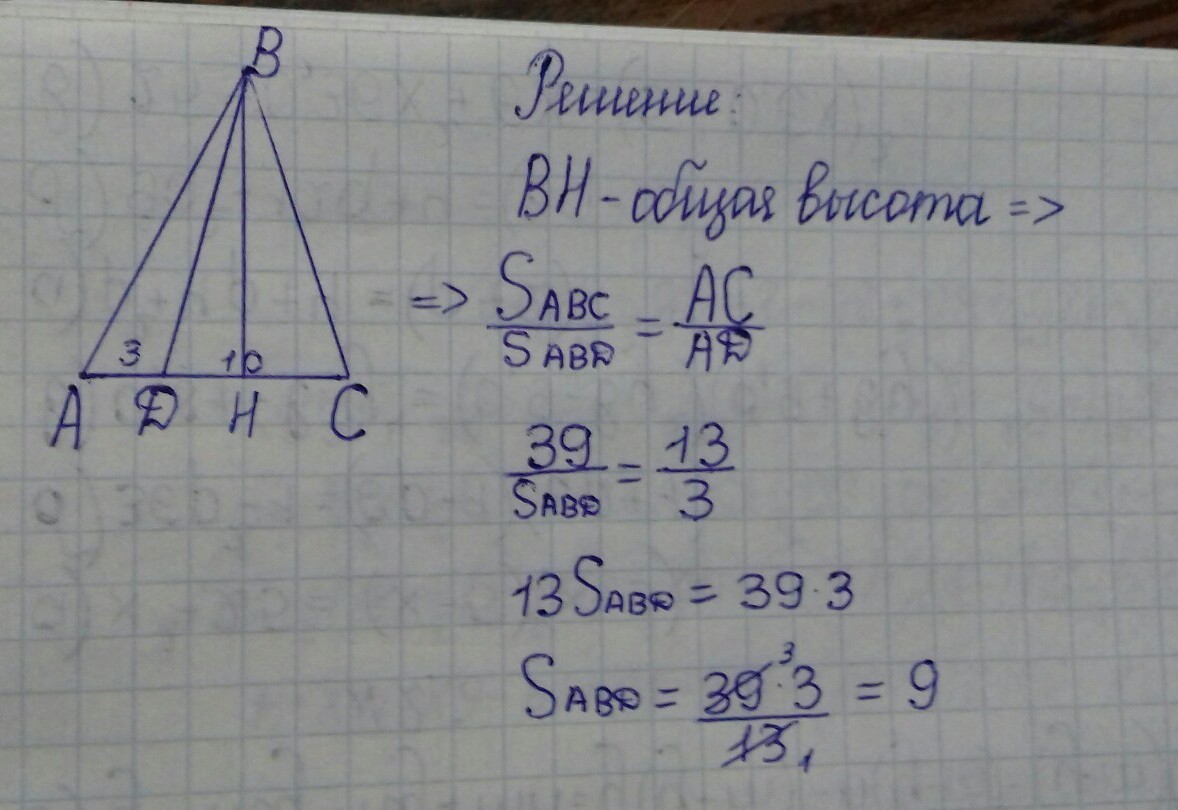 B
3
10
A D H C
Решение:
BH - общая высота =>
=> S ABC / S ABD = AC / AD
39 / S ABD = 13 / 3
13 S ABD = 39 · 3
S ABD = 39 ³ · 3 / 13 ₁ = 9